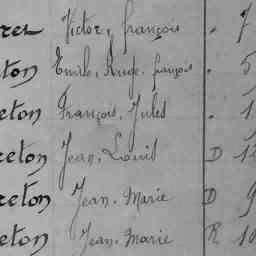 ret Victor, françois . 7
ton Emile, Ange, françois . 5
eton François, Jules . 1
reton Jean, Louis D 12
reton Jean, Marie D 9
eton Jean, Marie R 10